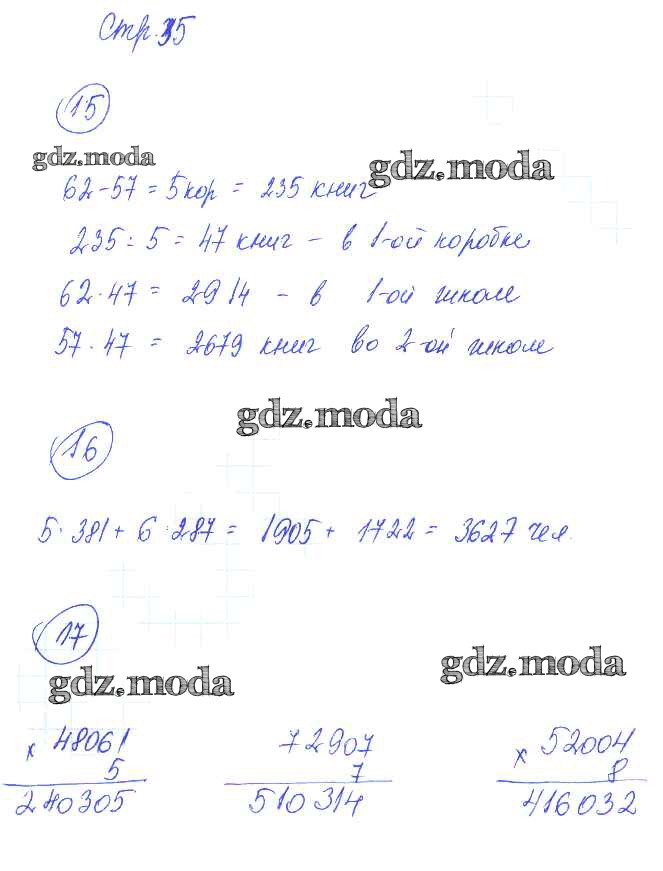 Стр. 35
15
gdz.moda
gdz.moda
62-57 = 5 кор = 235 книг
235 : 5 = 47 книг - в 1-ой коробке
62 · 47 = 2914 - в 1-ой школе
57 · 47 = 2679 книг во 2-ой школе
gdz.moda
16
5 · 381 + 6 · 287 = 1905 + 1722 = 3627 чел.
17
gdz.moda
gdz.moda
x 48061
5
240305
72907
7
510314
x 52004
8
416032